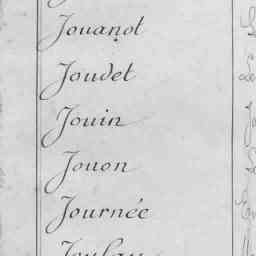 Jouanot
Joudet
Jouin
Jouon
Journée